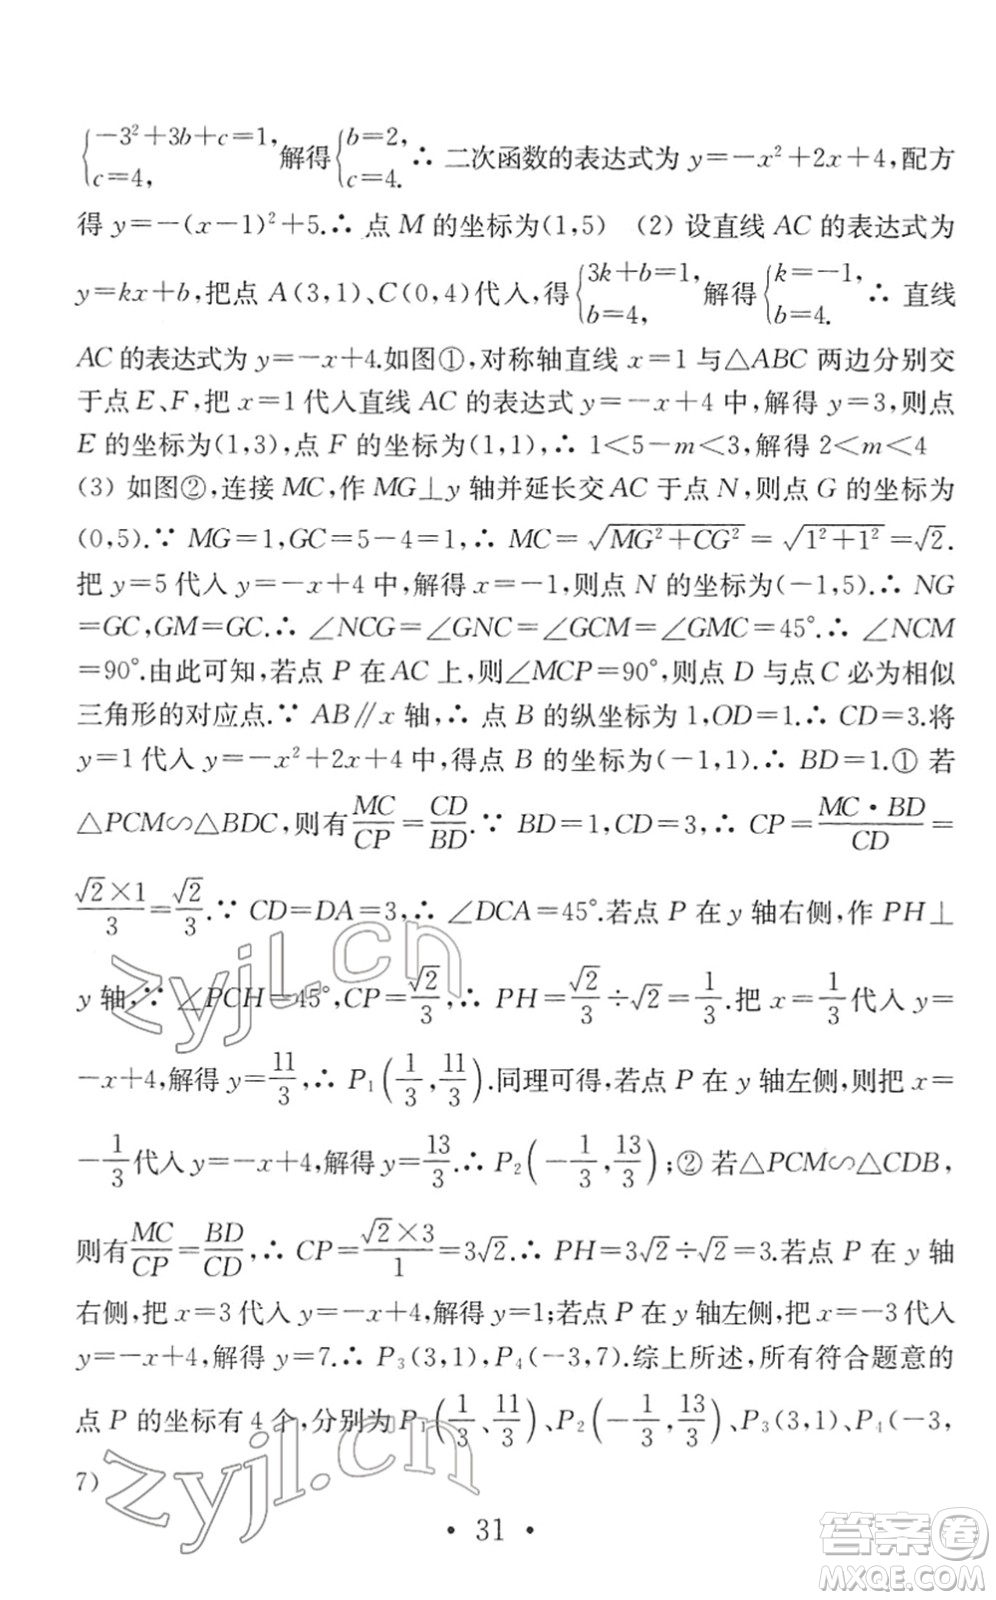 {−3²+3b+c=1, c=4, 解得{b=2, c=4. ∴ 二次函数的表达式为 y=−x²+2x+4,配方
得 y=−(x−1)²+5.∴ 点 M 的坐标为(1,5) (2) 设直线 AC 的表达式为
y=kx+b,把点 A(3,1)、C(0,4)代入,得{3k+b=1, b=4, 解得{k=−1, b=4. ∴ 直线
AC 的表达式为 y=−x+4.如图①,对称轴直线 x=1 与△ABC 两边分别交
于点 E、F,把 x=1代入直线 AC 的表达式 y=−x+4 中,解得 y=3,则点
E 的坐标为(1,3),点 F 的坐标为(1,1),∴ 1<5−m<3,解得 2<m<4
(3) 如图②,连接 MC,作 MG⊥y 轴并延长交 AC 于点 N,则点 G 的坐标为
(0,5).∵ MG=1,GC=5−4=1,∴ MC=√(MG²+CG²)=√(1²+1²)=√2.
把 y=5 代入 y=−x+4 中,解得 x=−1,则点 N 的坐标为(−1,5).∴ NG
=GC,GM=GC.∴ ∠NCG=∠GNC=∠GCM=∠GMC=45°.∴ ∠NCM
=90°.由此可知,若点 P 在 AC 上,则∠MCP=90°,则点 D 与点 C 必为相似
三角形的对应点.∵ AB∥x 轴,∴ 点 B 的纵坐标为 1,OD=1.∴ CD=3.将
y=1代入 y=−x²+2x+4 中,得点 B 的坐标为(−1,1).∴ BD=1.① 若
△PCM∽△BDC,则有MC/CP=CD/BD.∵ BD=1,CD=3,∴ CP=MC·BD/CD=
√2×1/3=√2/3.∵ CD=DA=3,∴ ∠DCA=45°.若点 P 在 y 轴右侧,作 PH⊥
y 轴,∵ ∠PCH=45°,CP=√2/3,∴ PH=√2/3÷√2=1/3.把 x=1/3代入 y=
−x+4,解得 y=11/3,∴ P₁(1/3,11/3).同理可得,若点 P 在 y 轴左侧,则把 x=
−1/3代入 y=−x+4,解得 y=13/3.∴ P₂(−1/3,13/3);② 若△PCM∽△CDB,
则有MC/CP=BD/CD,∴ CP=√2×3/1=3√2.∴ PH=3√2÷√2=3.若点 P 在 y 轴
右侧,把 x=3 代入 y=−x+4,解得 y=1;若点 P 在 y 轴左侧,把 x=−3 代入
y=−x+4,解得 y=7.∴ P₃(3,1),P₄(−3,7).综上所述,所有符合题意的
点 P 的坐标有 4 个,分别为 P₁(1/3、11/3)、P₂(−1/3,13/3)、P₃(3,1)、P₄(−3,
7)
• 31 •
zyjl.cn
zyjl.cn
答案卷
MXQE.COM